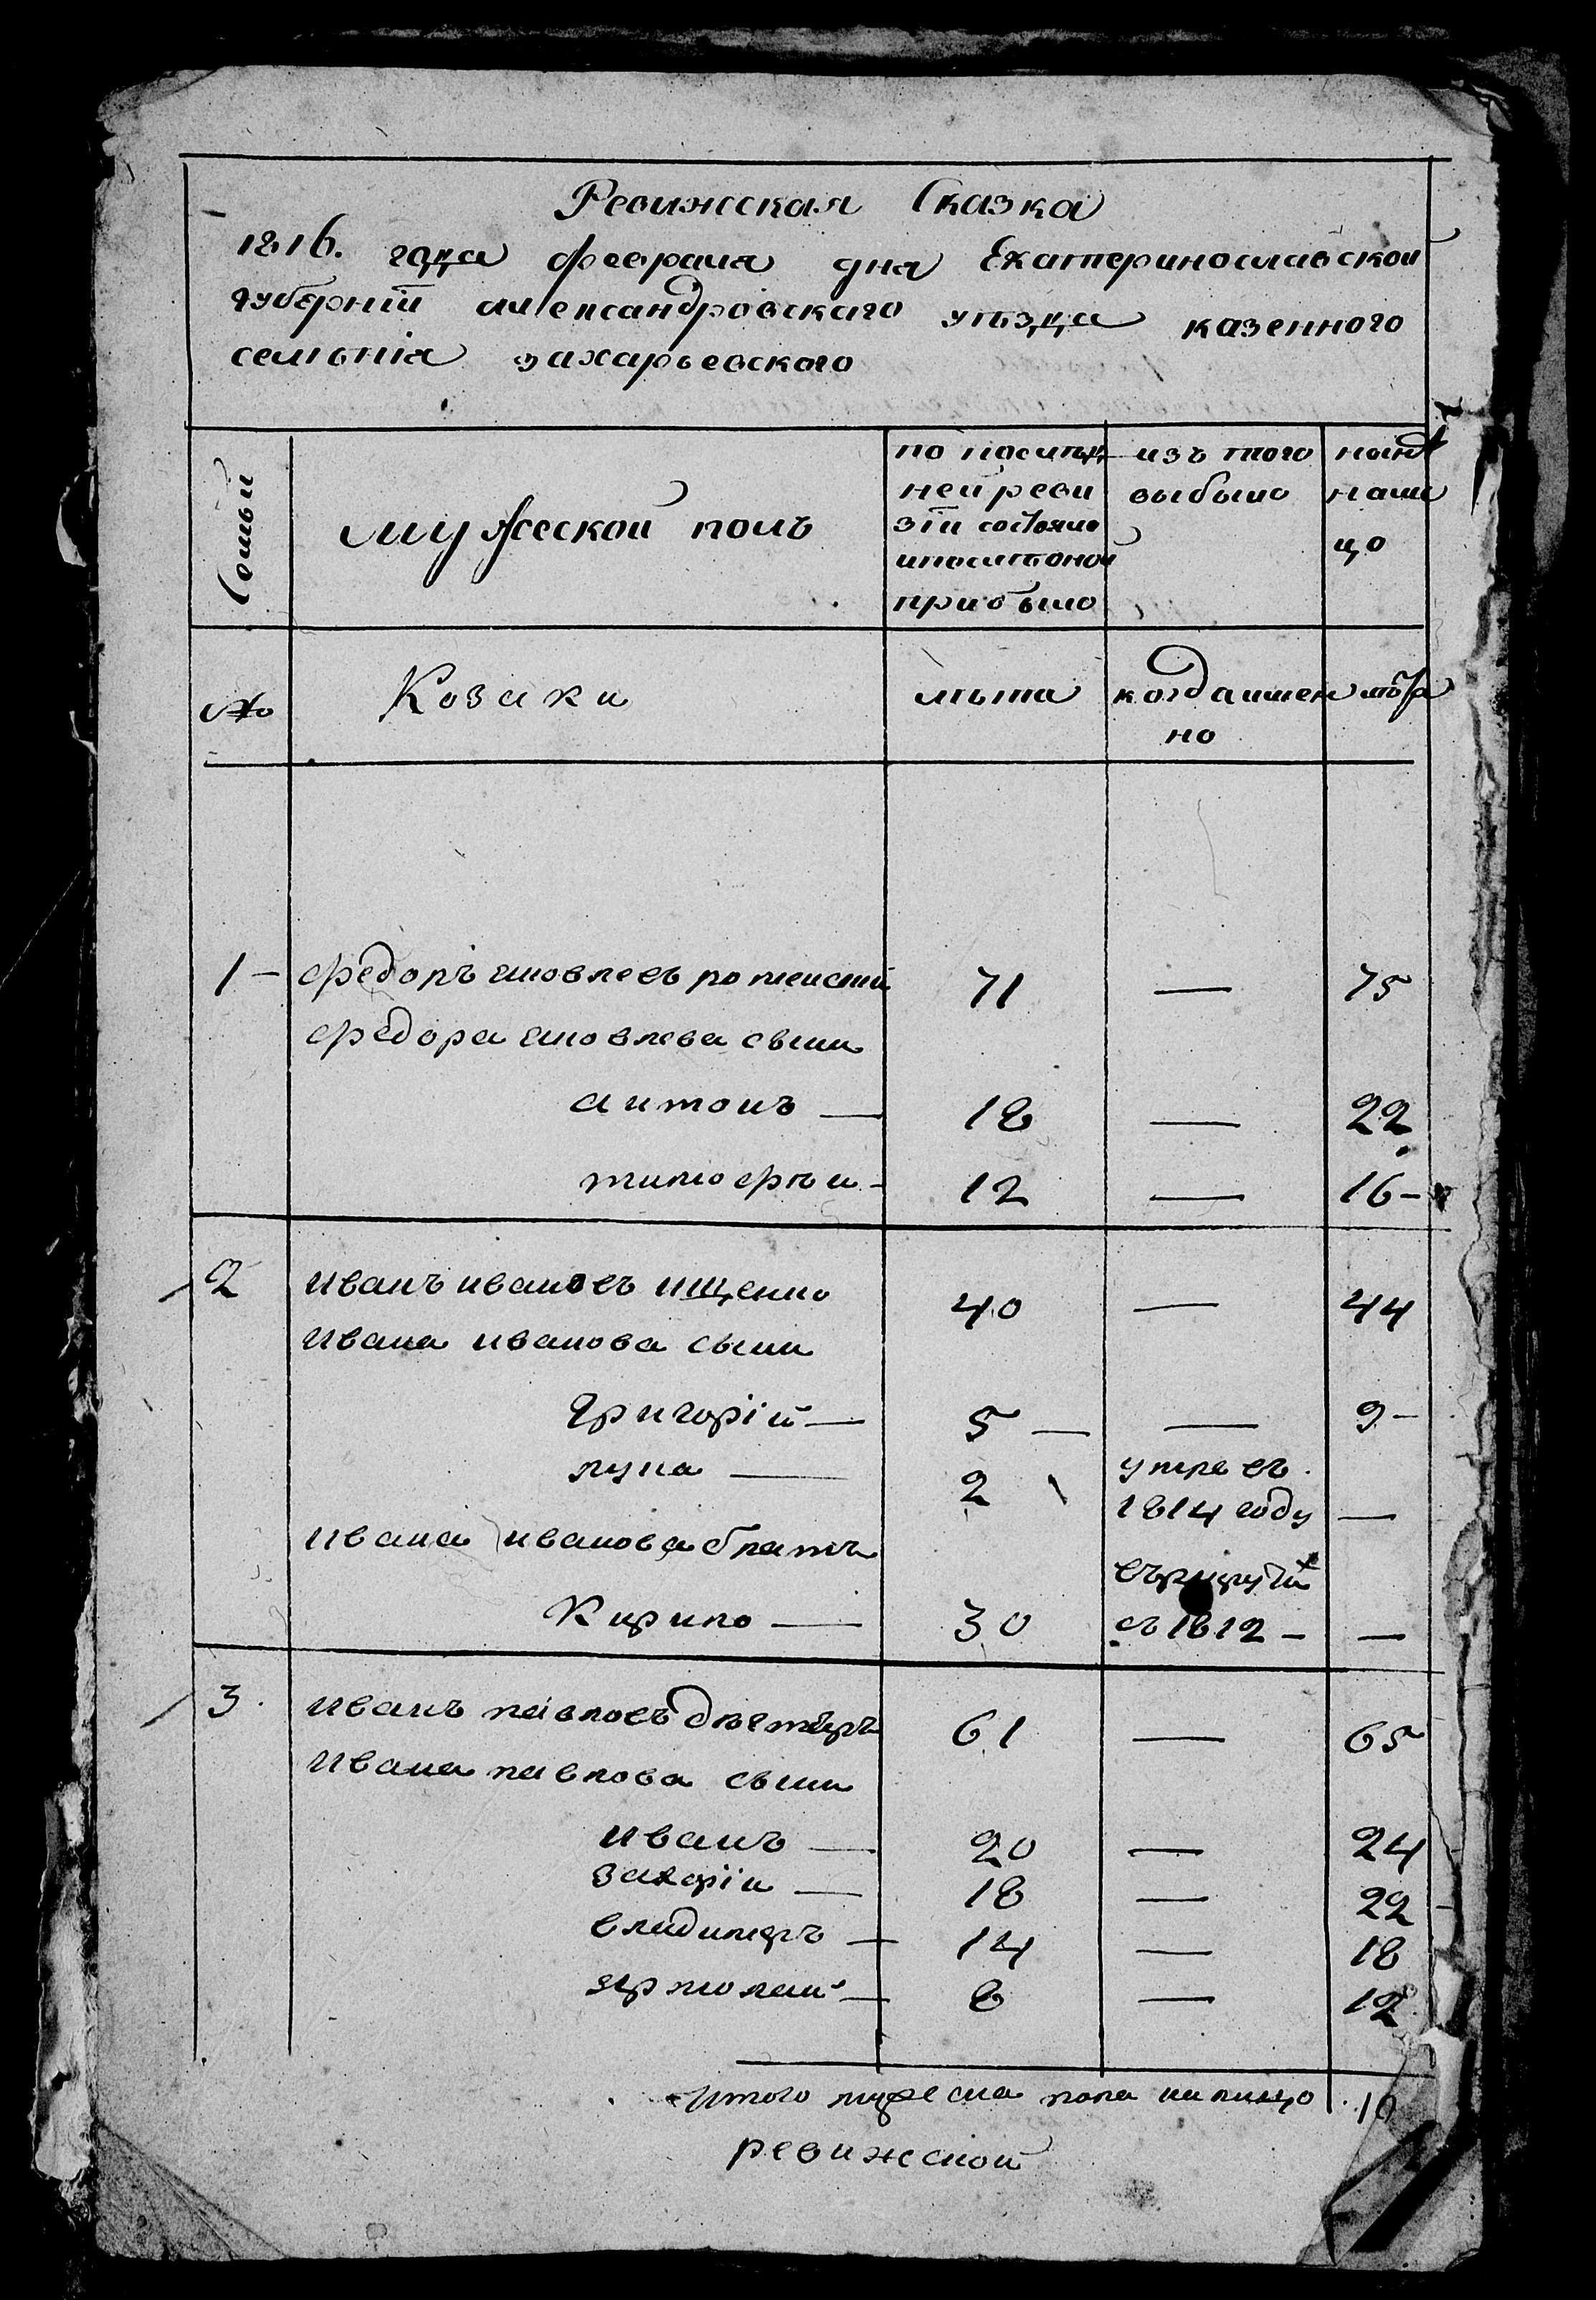 Ревижская Сказка
1816. года февраля дня Екатеринославской
губернїи александровского уѣзда казенного
селѣнія захарьевского
Сѣмьи
мужеской полъ
по послѣд
ней реви
зїи состояло
ипослѣоной
прибыло
изъ того
выбыло
нынѣ
нали
цо
№
Козаки
лѣта
когдаимен
но
лѣта
1 — федоръ яковлевъ 71 — 75
федора яковлева сыни
антонъ — 18 — 22
тимофѣи - 12 — 16 -
2 иванъ ивановъ ищенко 40 — 44
ивана иванова сыни
григорій — 5 — — 9 -
лука — 2 умре въ
1814 году —
ивана иванова братъ
Кирило — 30
въ 1812 - —
3 иванъ павловъ 61 — 65
ивана павлова сыни
иванъ — 20 — 24
захарїи — 18 — 22
владимеръ — 14 — 18
ярмолай — 8 — 12
итого мужеска пола налицо 10
ревижской